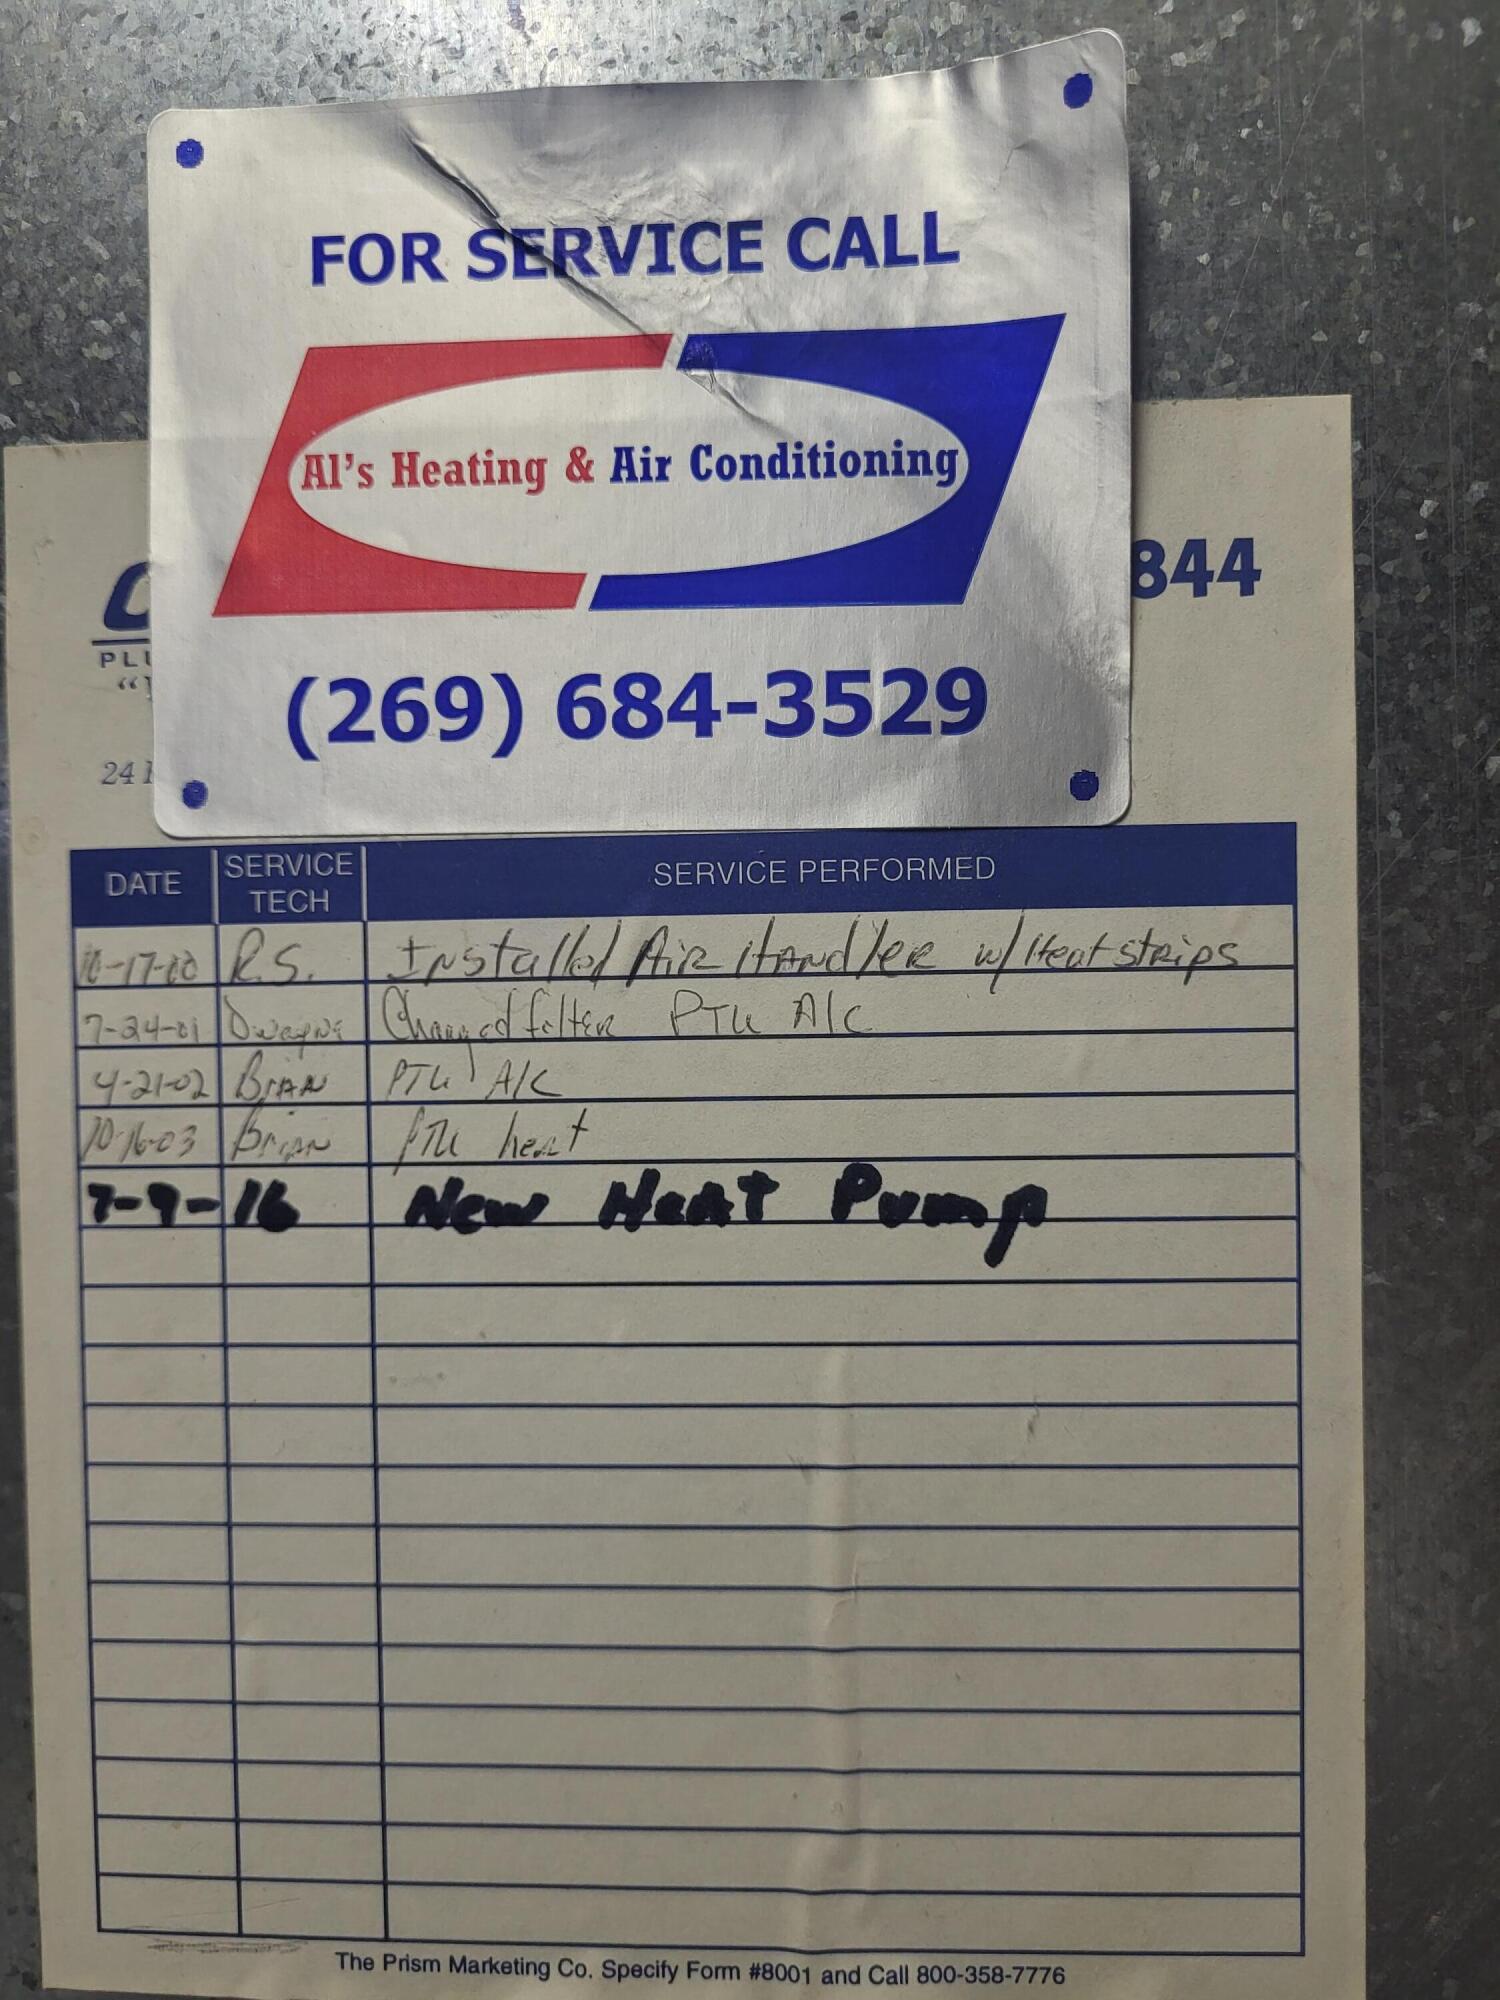 FOR SERVICE CALL
Al's Heating & Air Conditioning
844
PLU
(269) 684-3529
24
DATE SERVICE TECH SERVICE PERFORMED
10-17-00 R.S. Installed Air Handler w/Heat strips
7-24-01 Dwayne Changed filter PTU A/C
4-21-02 Brian PTU A/C
10-16-03 Brian PTU heat
7-9-16 New Heat Pump
The Prism Marketing Co. Specify Form #8001 and Call 800-358-7776